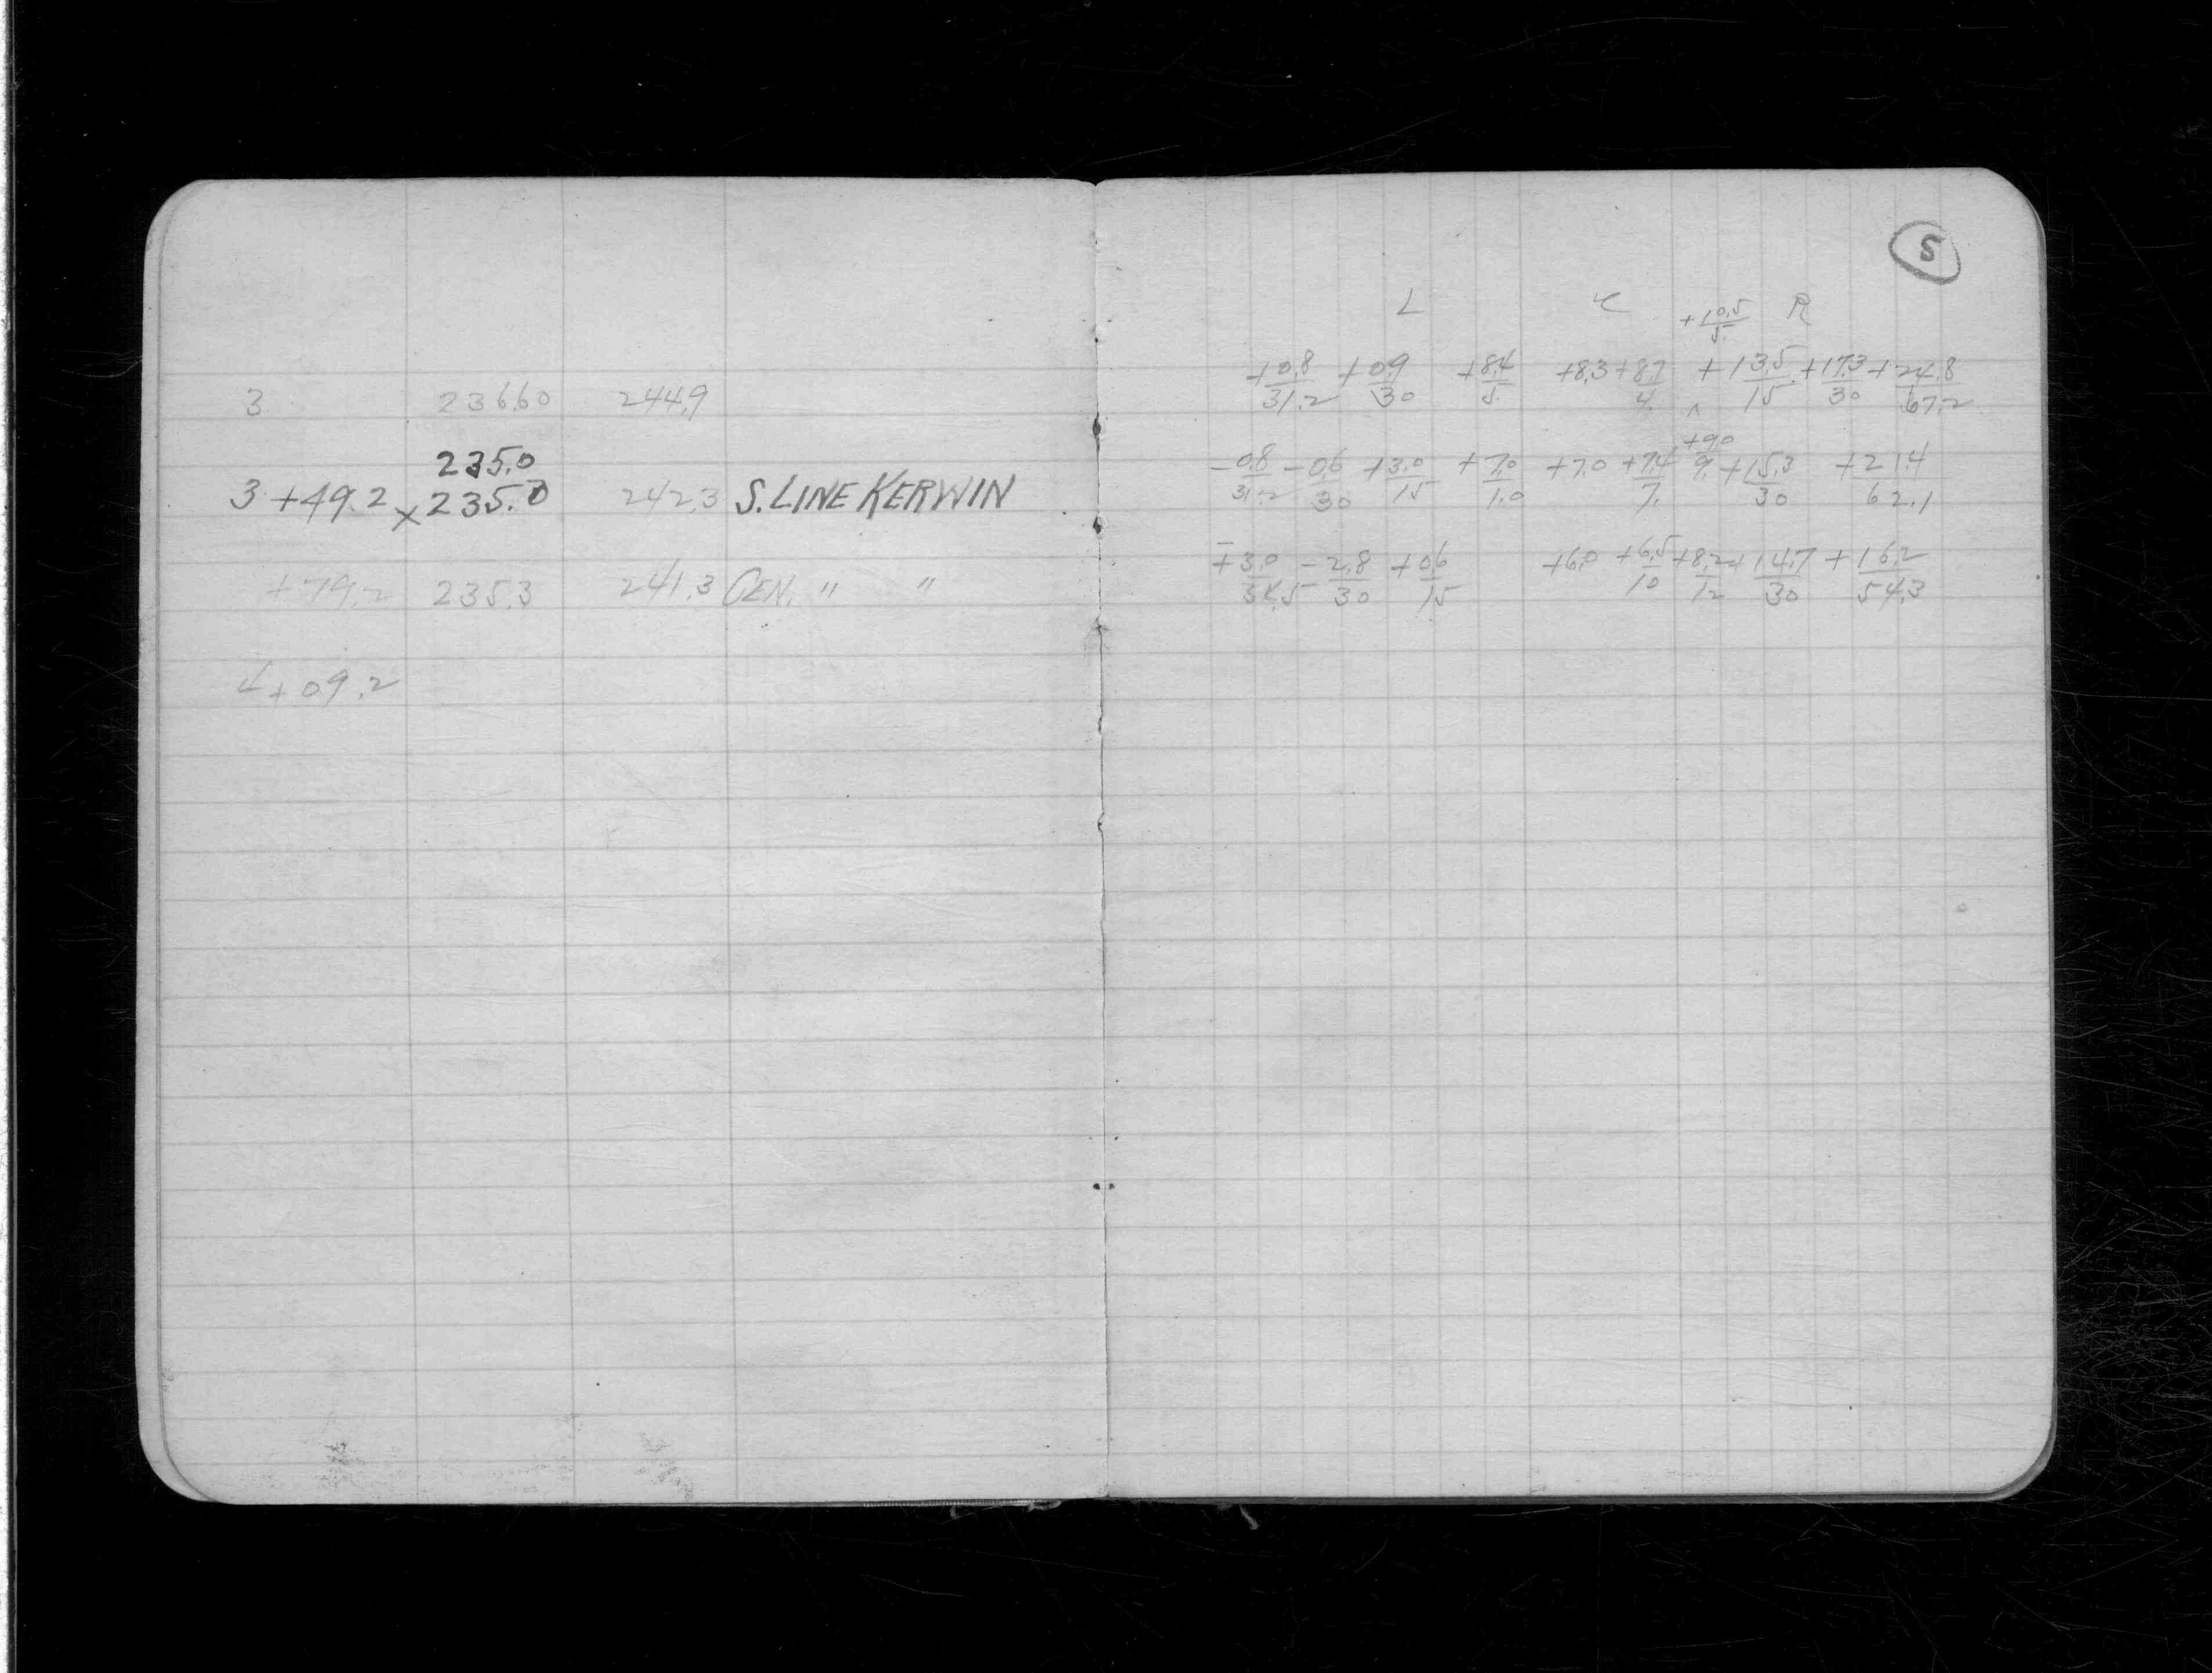 3 236.60 244.9
235.0
3 +49.2 x 235.0 242.3 S. LINE KERWIN
+79.2 235.3 241.3 CEN. " "
4+09.2
5
L C R
+10.5/5.
+0.8/31.2 +0.9/30 +8.4/5. +8.3 +8.7/4. ^ +13.5/15 +17.3/30 +24.8/67.2
-0.8/31.2 -0.6/30 +3.0/15 +7.0/1.0 +7.0 +7.4/7. +9.0/9. +15.3/30 +21.4/62.1
-2.8/30 +0.6/15 +6.0 +6.5/10 +8.2/12 +14.7/30 +16.2/54.3